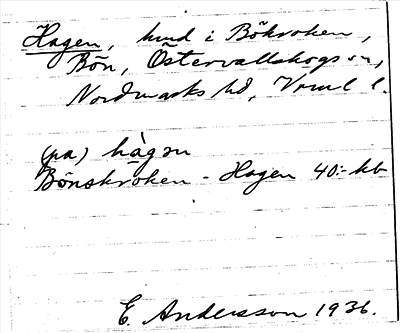 Hagen, hmd i Bökroken,
Bön, Östervallskogs sn,
Nordmarks hd, Vrml l.
(pa) hàgɜn
Bönskroken - Hagen 40:- kb
E. Andersson 1936.